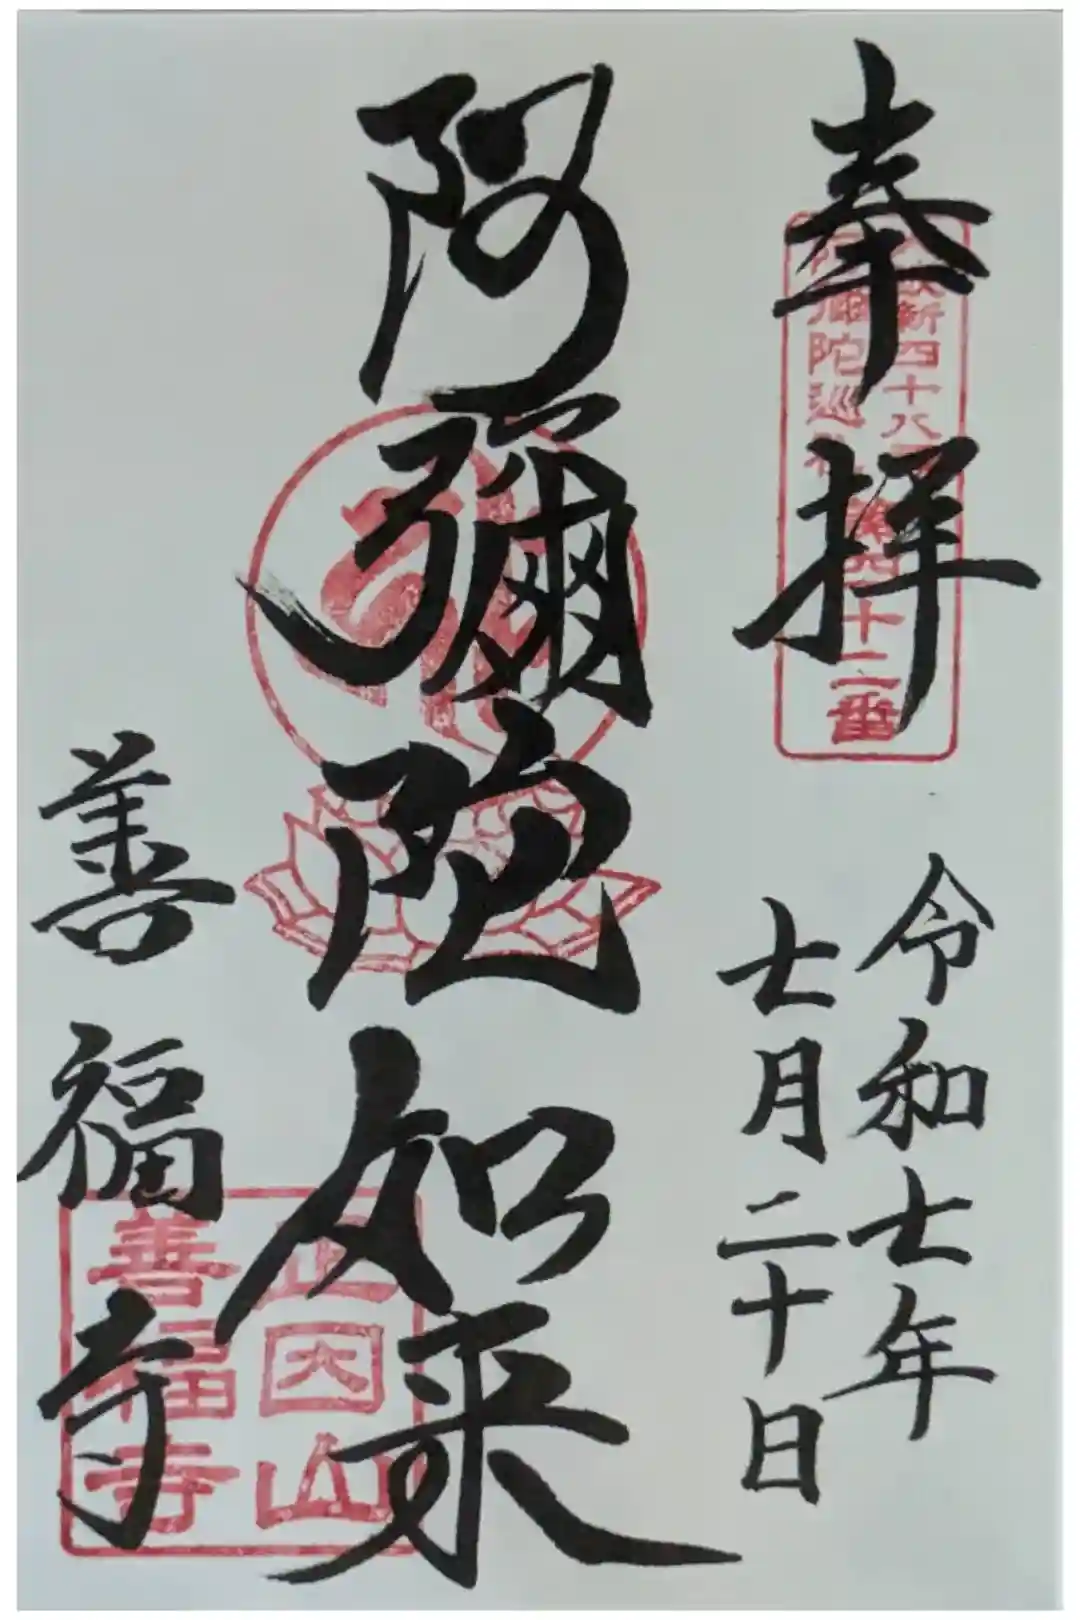 奉拝
新四十八
彌陀巡
第四十二番
令和七年
七月二十日
阿彌陀如来
善福寺
正因山
善福寺